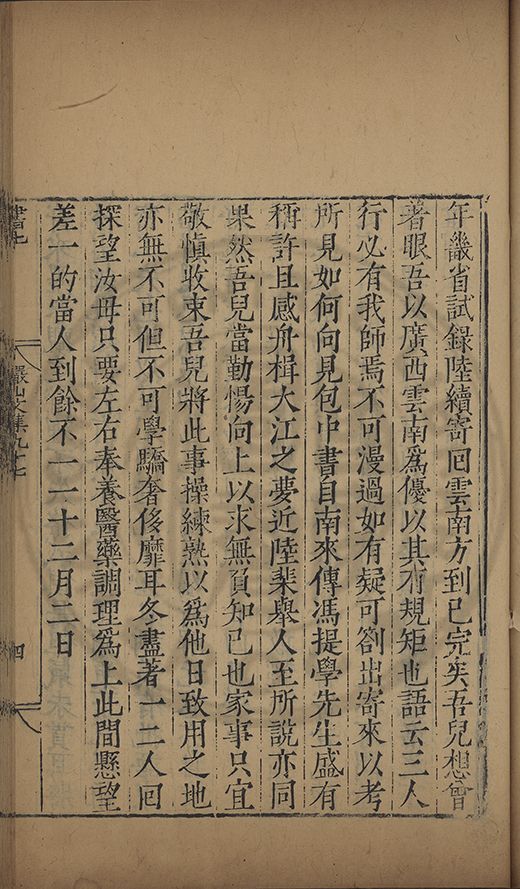 年畿省試錄陸續寄囘雲南方到已完矣吾兒想曾
著眼吾以廣西雲南爲優以其有規矩也語云三人
行必有我師焉不可漫過如有疑可劄出寄來以考
所見如何向見包中書自南來傳馮提學先生盛有
稱許且感舟楫大江之夢近陸棐舉人至所說亦同
果然吾兒當勤惕向上以求無負知己也家事只宜
敬愼收束吾兒將此事操練熟以爲他日致用之地
亦無不可但不可學驕奢侈靡耳冬盡著一二人囘
探望汝母只要左右奉養醫藥調理爲上此間懸望
差一的當人到餘不一一十二月二日
儼山文集九十七
四